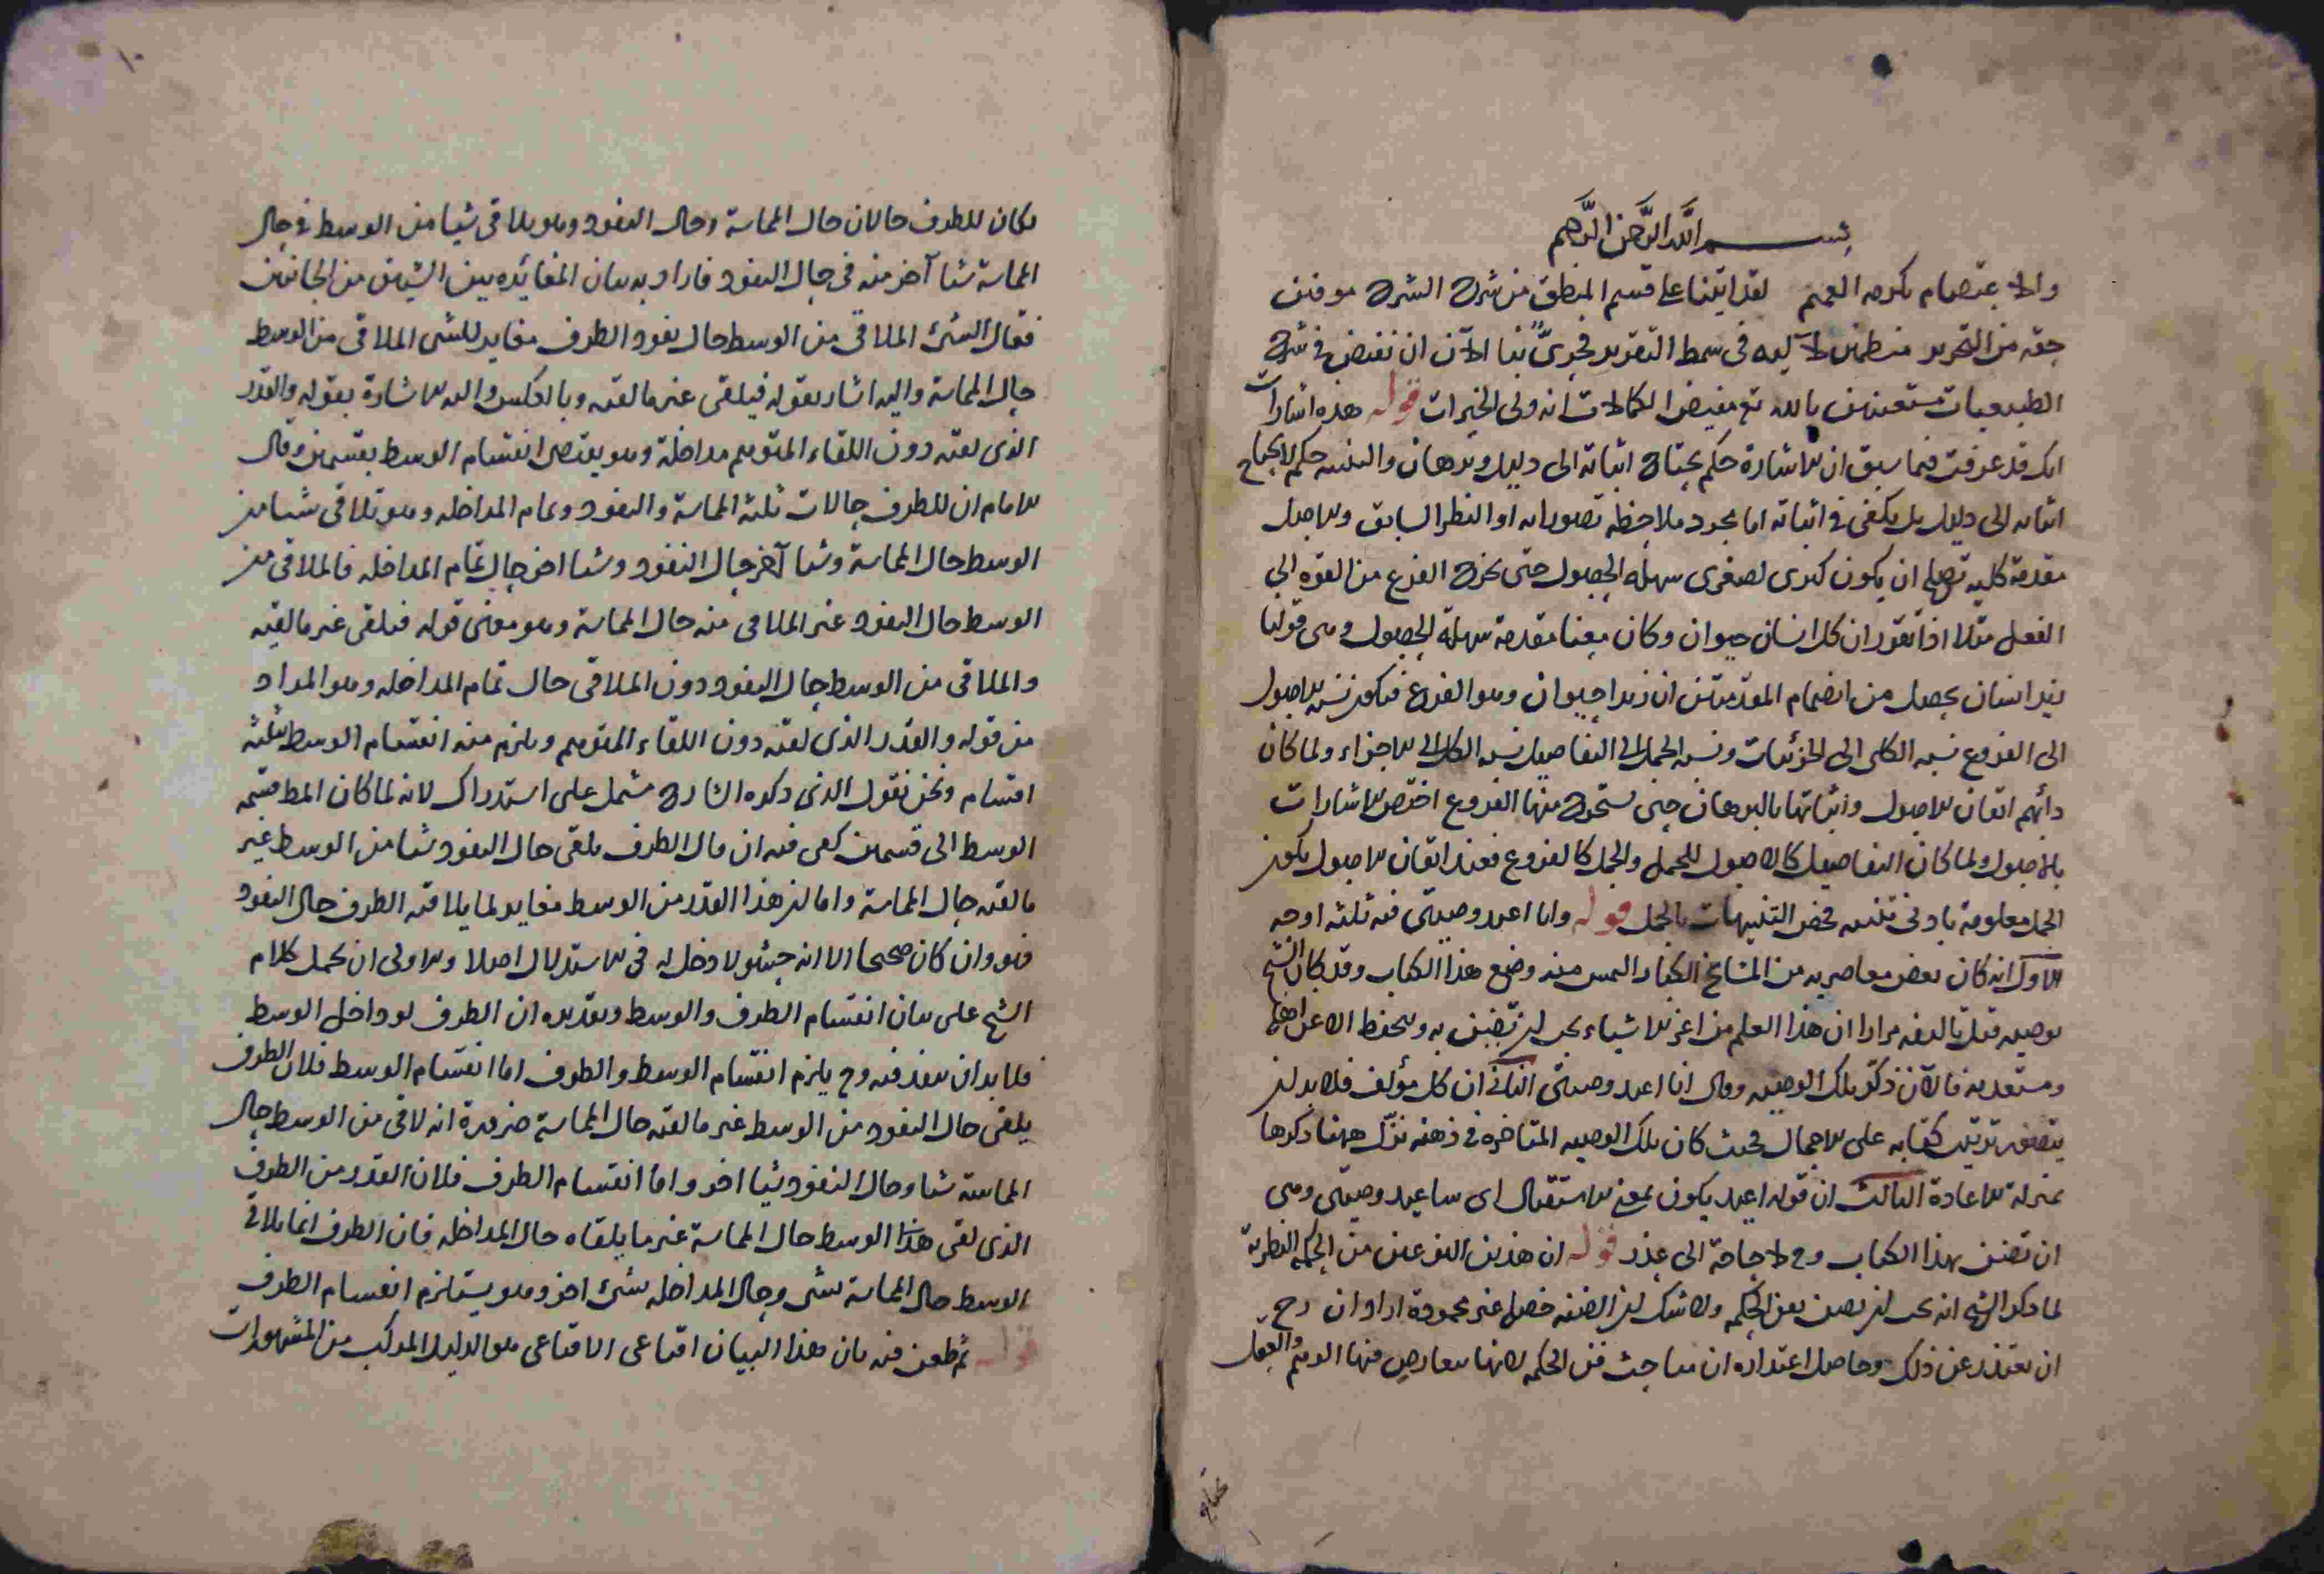 بسم الله الرحمن الرحيم
والاعتصام بكرمه العميم لقد اتينا على قسم المنطق من شرح الشرح موفين
حقه من التحرير منظمين لآليه في سمط التقرير فحرىّ بنا الآن ان نفيض في شرح
الطبيعيات مستعينين بالله تع مفيض الكمالات انه ولى الخيرات قوله هذه اشارات
انك قد عرفت فيما سبق ان الاشارة حكم يحتاج اثباته الى دليل وبرهان والتنبيه حكم لا يحتاج
اثباته الى دليل بل يكفى في اثباته اما مجرد ملاحظة تصوراته او النظر السابق والاصل
مقدمة كلية تصلح ان يكون كبرى لصغرى سهلة الحصول حتى يخرج الفرع من القوه الى
الفعل مثلا اذا تقرر ان كل انسان حيوان وكان معنا مقدمة سهلة الحصول وهى قولنا
زيد انسان يحصل من انضمام المقدمتين ان زيدا حيوان وهو الفرع فيكون نسبه الاصول
الى الفروع نسبه الكلى الى الجزئيات ونسبه الجمل الى التفاصيل نسبه الكل الى الاجزاء ولما كان
دأبهم اتقان الاصول واثباتها بالبرهان حتى يستخرج منها الفروع اختص الاشارات
بالاصول ولما كان التفاصيل كالاصول للجمل والجمل كالفروع فعند اتقان الاصول يكون
الجمل معلومة بادنى تنبيه فخص التنبيهات بالجمل قوله وانا اعيد وصيتى فيه ثلثه اوجه
الاول انه كان بعض معاصريه من المشايخ الكبار التمس منه وضع هذا الكتاب وقد كان الشيخ
يوصيه قبل تاليفه مرارا ان هذا العلم من اعز الاشياء يجب ان تضنن به ويحفظ الا عن اهله
ومستعديه فالآن ذكّر تلك الوصيه وقال انا اعيد وصيتى الثانى ان كل مؤلف فلا بد ان
يتصور ترتيب كتابه على الاجمال فحيث كان تلك الوصيه المتاخره في ذهنه نزّل ههنا ذكرها
بمنزلة الاعادة الثالث ان قوله اعيد يكون بمعنى الاستقبال اى ساعيد وصيتى وهى
ان تضنن بهذا الكتاب وح لا حاجة الى عذر قوله ان هذين النوعين من الحكمة النظرية
لما ذكر الشيخ انه يجب ان يضن بفن الحكمه ولا شك ان الضنه خصلة غير محمودة اراد ان رح
ان يعتذر عن ذلك وحاصل اعتذاره ان مباحث فن الحكمه لانها يتعارض فيها الوهم والعقل
يحتاج
١٠
فكان للطرف حالان حال المماسة وحال النفوذ وهو يلاقى شيا من الوسط في حال
المماسة شيا آخر منه في حال النفوذ فاراد به بيان المغايره بين الشيئين من الجانبين
فقال الشئ الملاقى من الوسط حال نفوذ الطرف مغاير للشى الملاقى من الوسط
حال المماسة واليه اشار بقوله فيلقى غير ما لقيه وبالعكس واليه الاشارة بقوله والقدر
الذى لقيه دون اللقاء المتوهم مداخلة وهو يقتضى انقسام الوسط بقسمين وقال
الامام ان للطرف حالات ثلثه المماسة والنفوذ وتمام المداخله وهو تلاقى شيا من
الوسط حال المماسة وشيا آخر حال النفوذ وشيا اخر حال تمام المداخله فالملاقى من
الوسط حال النفوذ غير الملاقى منه حال المماسة وهو معنى قوله فيلقى غير ما لقيه
والملاقى من الوسط حال النفوذ دون الملاقى حال تمام المداخله وهو المراد
من قوله والقدر الذى لقيه دون اللقاء المتوهم ويلزم منه انقسام الوسط بثلثة
اقسام ونحن نقول الذى ذكره الشارح مشتمل على استدراك لانه لما كان المط قسمه
الوسط الى قسمين كفى فيه ان قال الطرف يلقى حال النفوذ شيا من الوسط غير
ما لقيه حال المماسة واما ان هذا القدر من الوسط مغاير لما يلاقيه الطرف حال النفوذ
فهو وان كان صحيحا الا انه حشو لا دخل له فى الاستدلال اصلا والاولى ان يحمل كلام
الشيخ على بيان انقسام الطرف والوسط وتقديره ان الطرف لو داخل الوسط
فلا بد ان ينفذ فيه وح يلزم انقسام الوسط والطرف اما انقسام الوسط فلان الطرف
يلقى حال النفوذ من الوسط غير ما لقيه حال المماسة ضرورة انه لاقى من الوسط حال
المماسة شيا وحال النفوذ شيا اخر واما انقسام الطرف فلان القدر من الطرف
الذى لقى هذا الوسط حال المماسة غير ما يلقاه حال المداخله فان الطرف انما يلاقى
الوسط حال المماسة بشى وحال المداخله بشئ اخر وهو يستلزم انقسام الطرف
قوله ثم طعن فيه بان هذا البيان اقناعى الاقناعى هو الدليل المركب من المشهورات